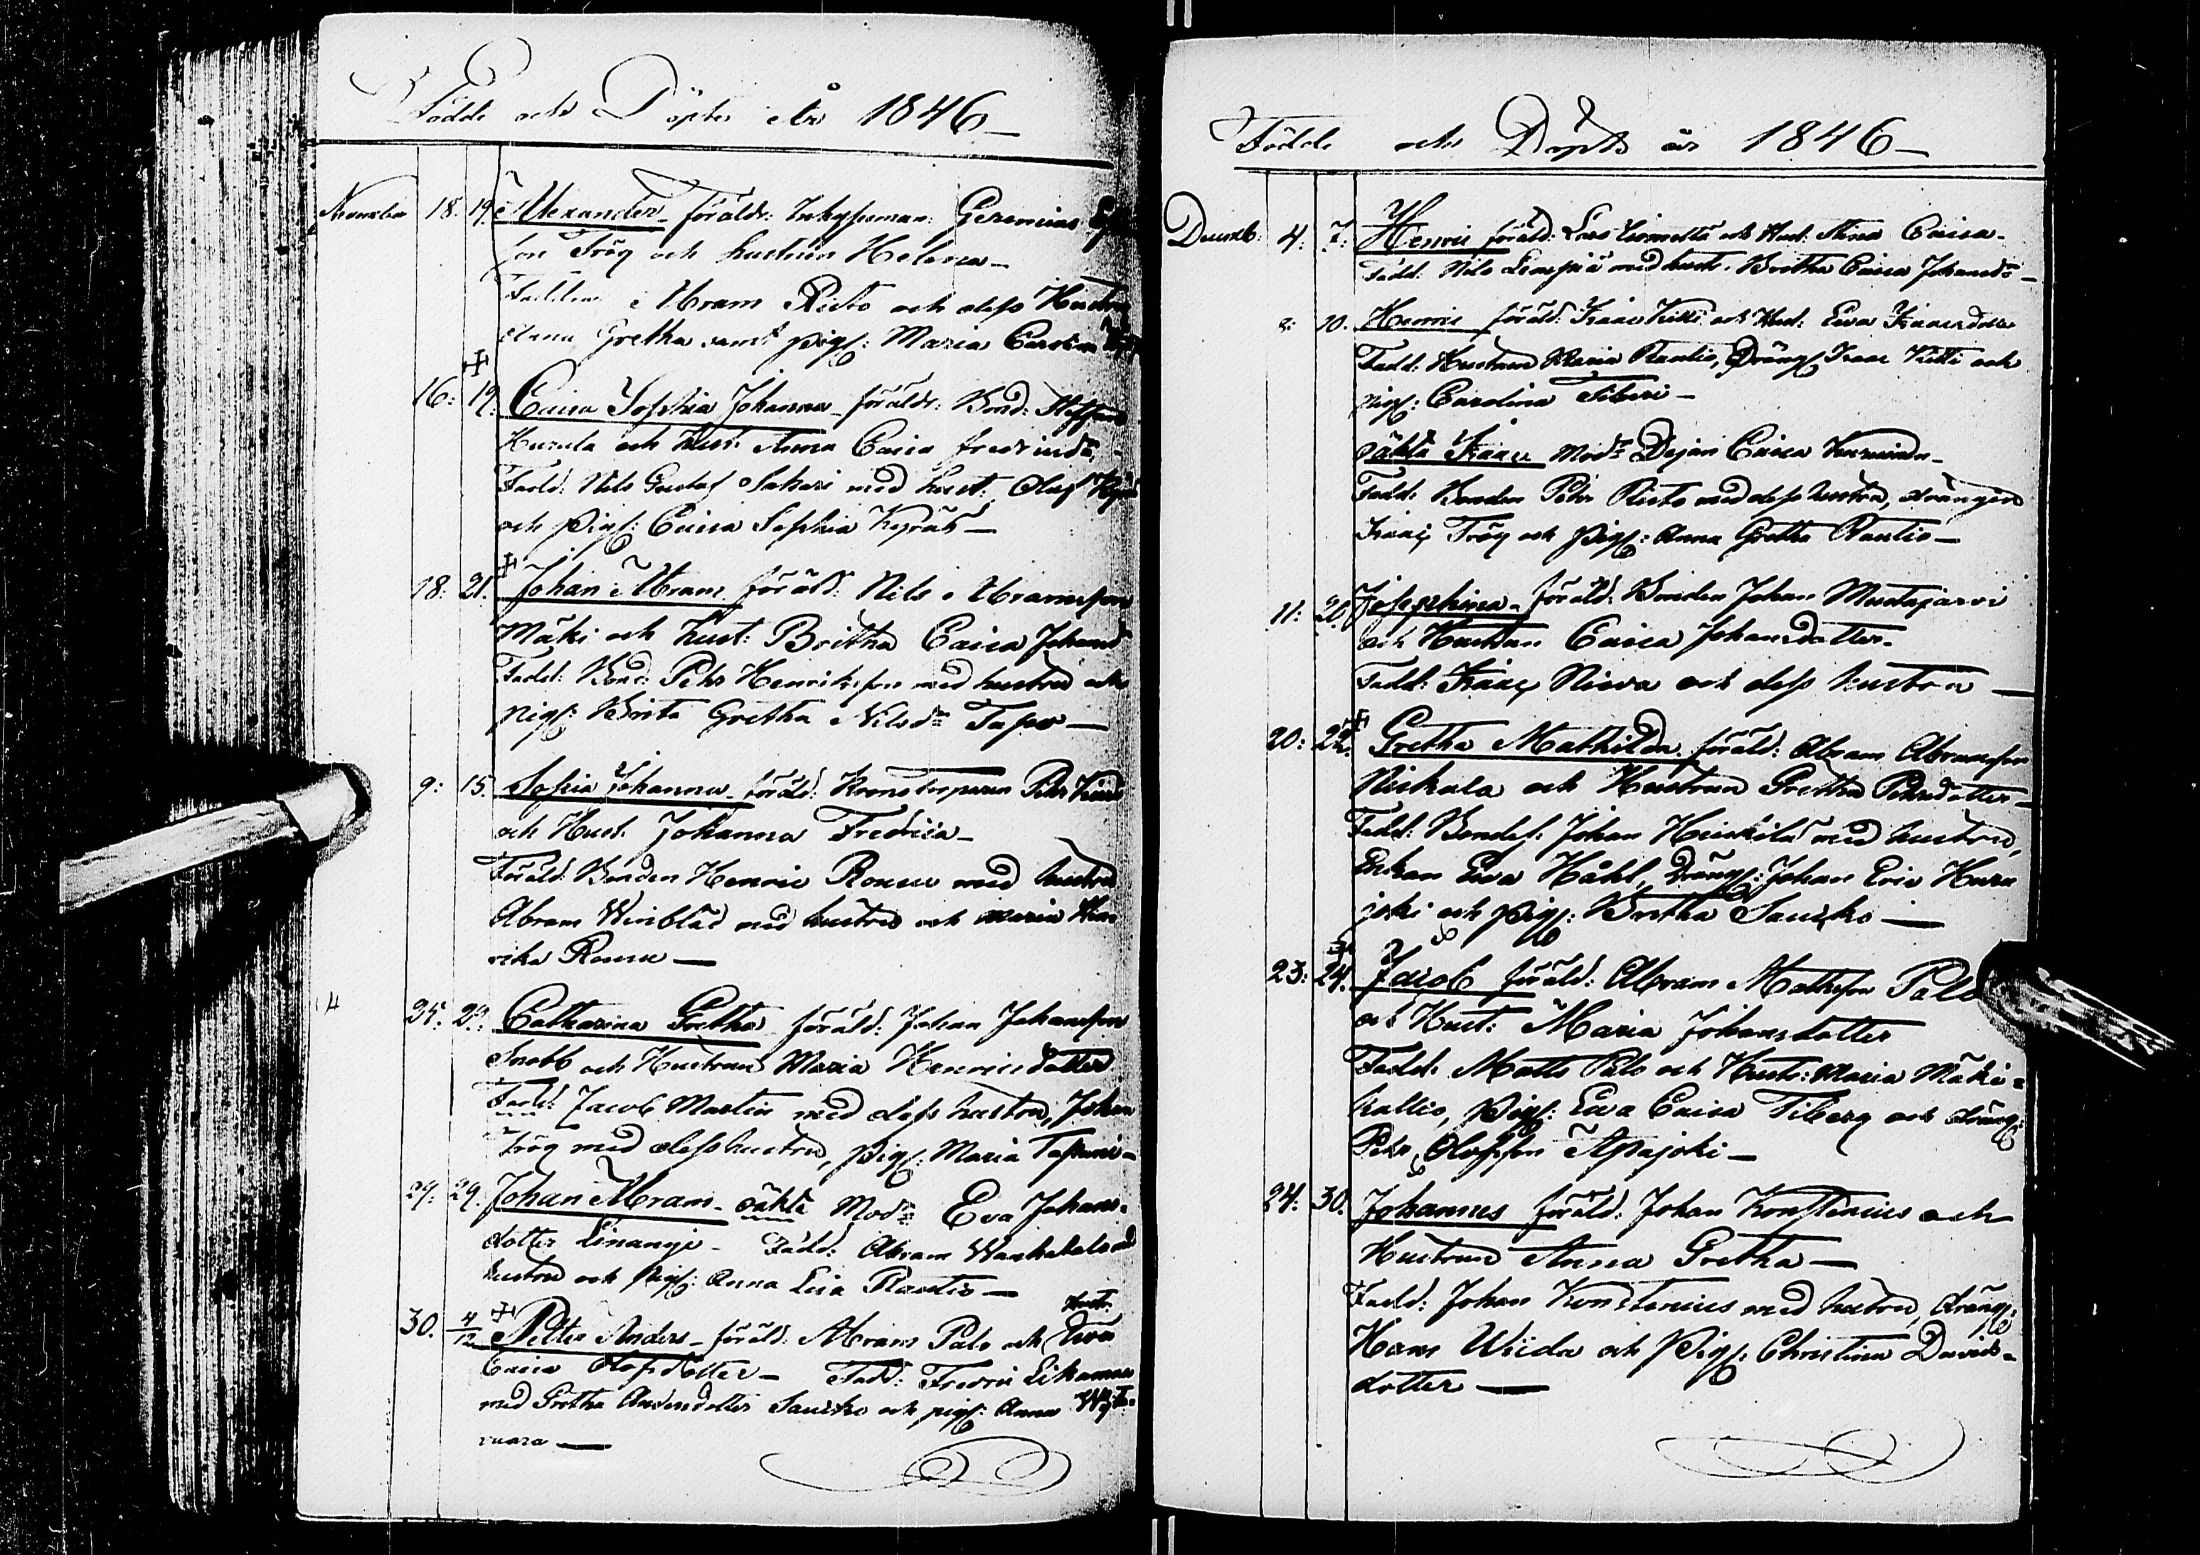 Födde och Döpte År 1846
November 18. 19. Alexander föräldr: Inhysesman Geremias
son Trög och hustrun Helena
Faddrar Abram Risto och dess Hustru
Anna Gretha samt pig: Maria Carolina
16: 19. Caisa Sophia Johanna föräldr: Bond: Steffan
Hurula och hust: Anna Caisa
Fadd: Nils Gustaf Sakari med hust: Olof
och Pig: Caisa Sophia Kyröh
18: 21. Johan Abram föräld: Nils Abramsson
Mäki och hust: Britha Caisa Johansd
Fadd: Bond: Pehr Henriksson med hustru och
pig: Brita Gretha Nilsdr Tapio
9: 15. Sofia Johanna föräld: Kronotorparen Pehr
och Hust: Johanna Fredrica
Föräld: Bonden Henric Romu med hustru
Abram Winblad med hustru och Maria Hen
rika Romu
25. Catharina Gretha föräld: Johan Johansson
Snobb och Hustrun Maria Henricsdotter
Fadd: Jacob Martin med dess hustru, Johan
Trög med dess hustru, Pig: Maria Tapani
29: 29. Johan Abram oäkta Modr Eva Johans
dotter Linanqi Fadd: Abram
hustru och Pig: Anna Lisa Rautio
30. 4/12 Petter Anders föräld: Abram Palo och hust: Eva
Caisa Olofsdotter Fadd: Fredric Likamaa
med Gretha Andersdotter Saucko och pig: Anna
vaara
Födde och Döpte år 1846
Decemb: 4. 7. Henric föräld: Lars och Hust: Anna Caisa
Fadd: Nils Lampiä med hust: Britha Caisa Johansd
8: 10. Henric föräld: Isaac Kitti och Hust: Ewa Isaacsdotter
Fadd: Hustrun Maria Rautio, Dräng Isaac Kitti och
pig: Carolina Fiberi
oäkta Isaac Modr Dejan Caisa
Fadd: Bonden Pehr Risto med dess hustru, drängen
Isaac Trög och Pig: Anna Gretha Rautio
11: 20. Josephina föräld: Bonden Johan Mustajärvi
och Hustrun Caisa Johansdotter
Fadd: Isaac Niova och dess hustru
20: 22. Gretha Mathilda föräld: Abram Abramsson
Niskala och Hustrun Gretha Pehrsdotter
Fadd: Bondes: Johan Heinkilä med hustru,
Enkan Ewa Håhl, Dräng: Johan Eric Hura
joki och Pig: Britha Saucko
23: 24. Jacob föräld: Abram Mathsson Palo
och Hust: Maria Johansdotter
Fadd: Matts Palo och Hust: Maria Mäki
kallio, Pig: Ewa Caisa Tiberg och dräng
Pehr Olofsson Apajoki
24: 30. Johannes föräld: Johan Konstenius och
Hustrun Anna Gretha
Fadd: Johan Konstenius med hustru, dräng:
Hans Wiida och Pig: Christina Davids
dotter